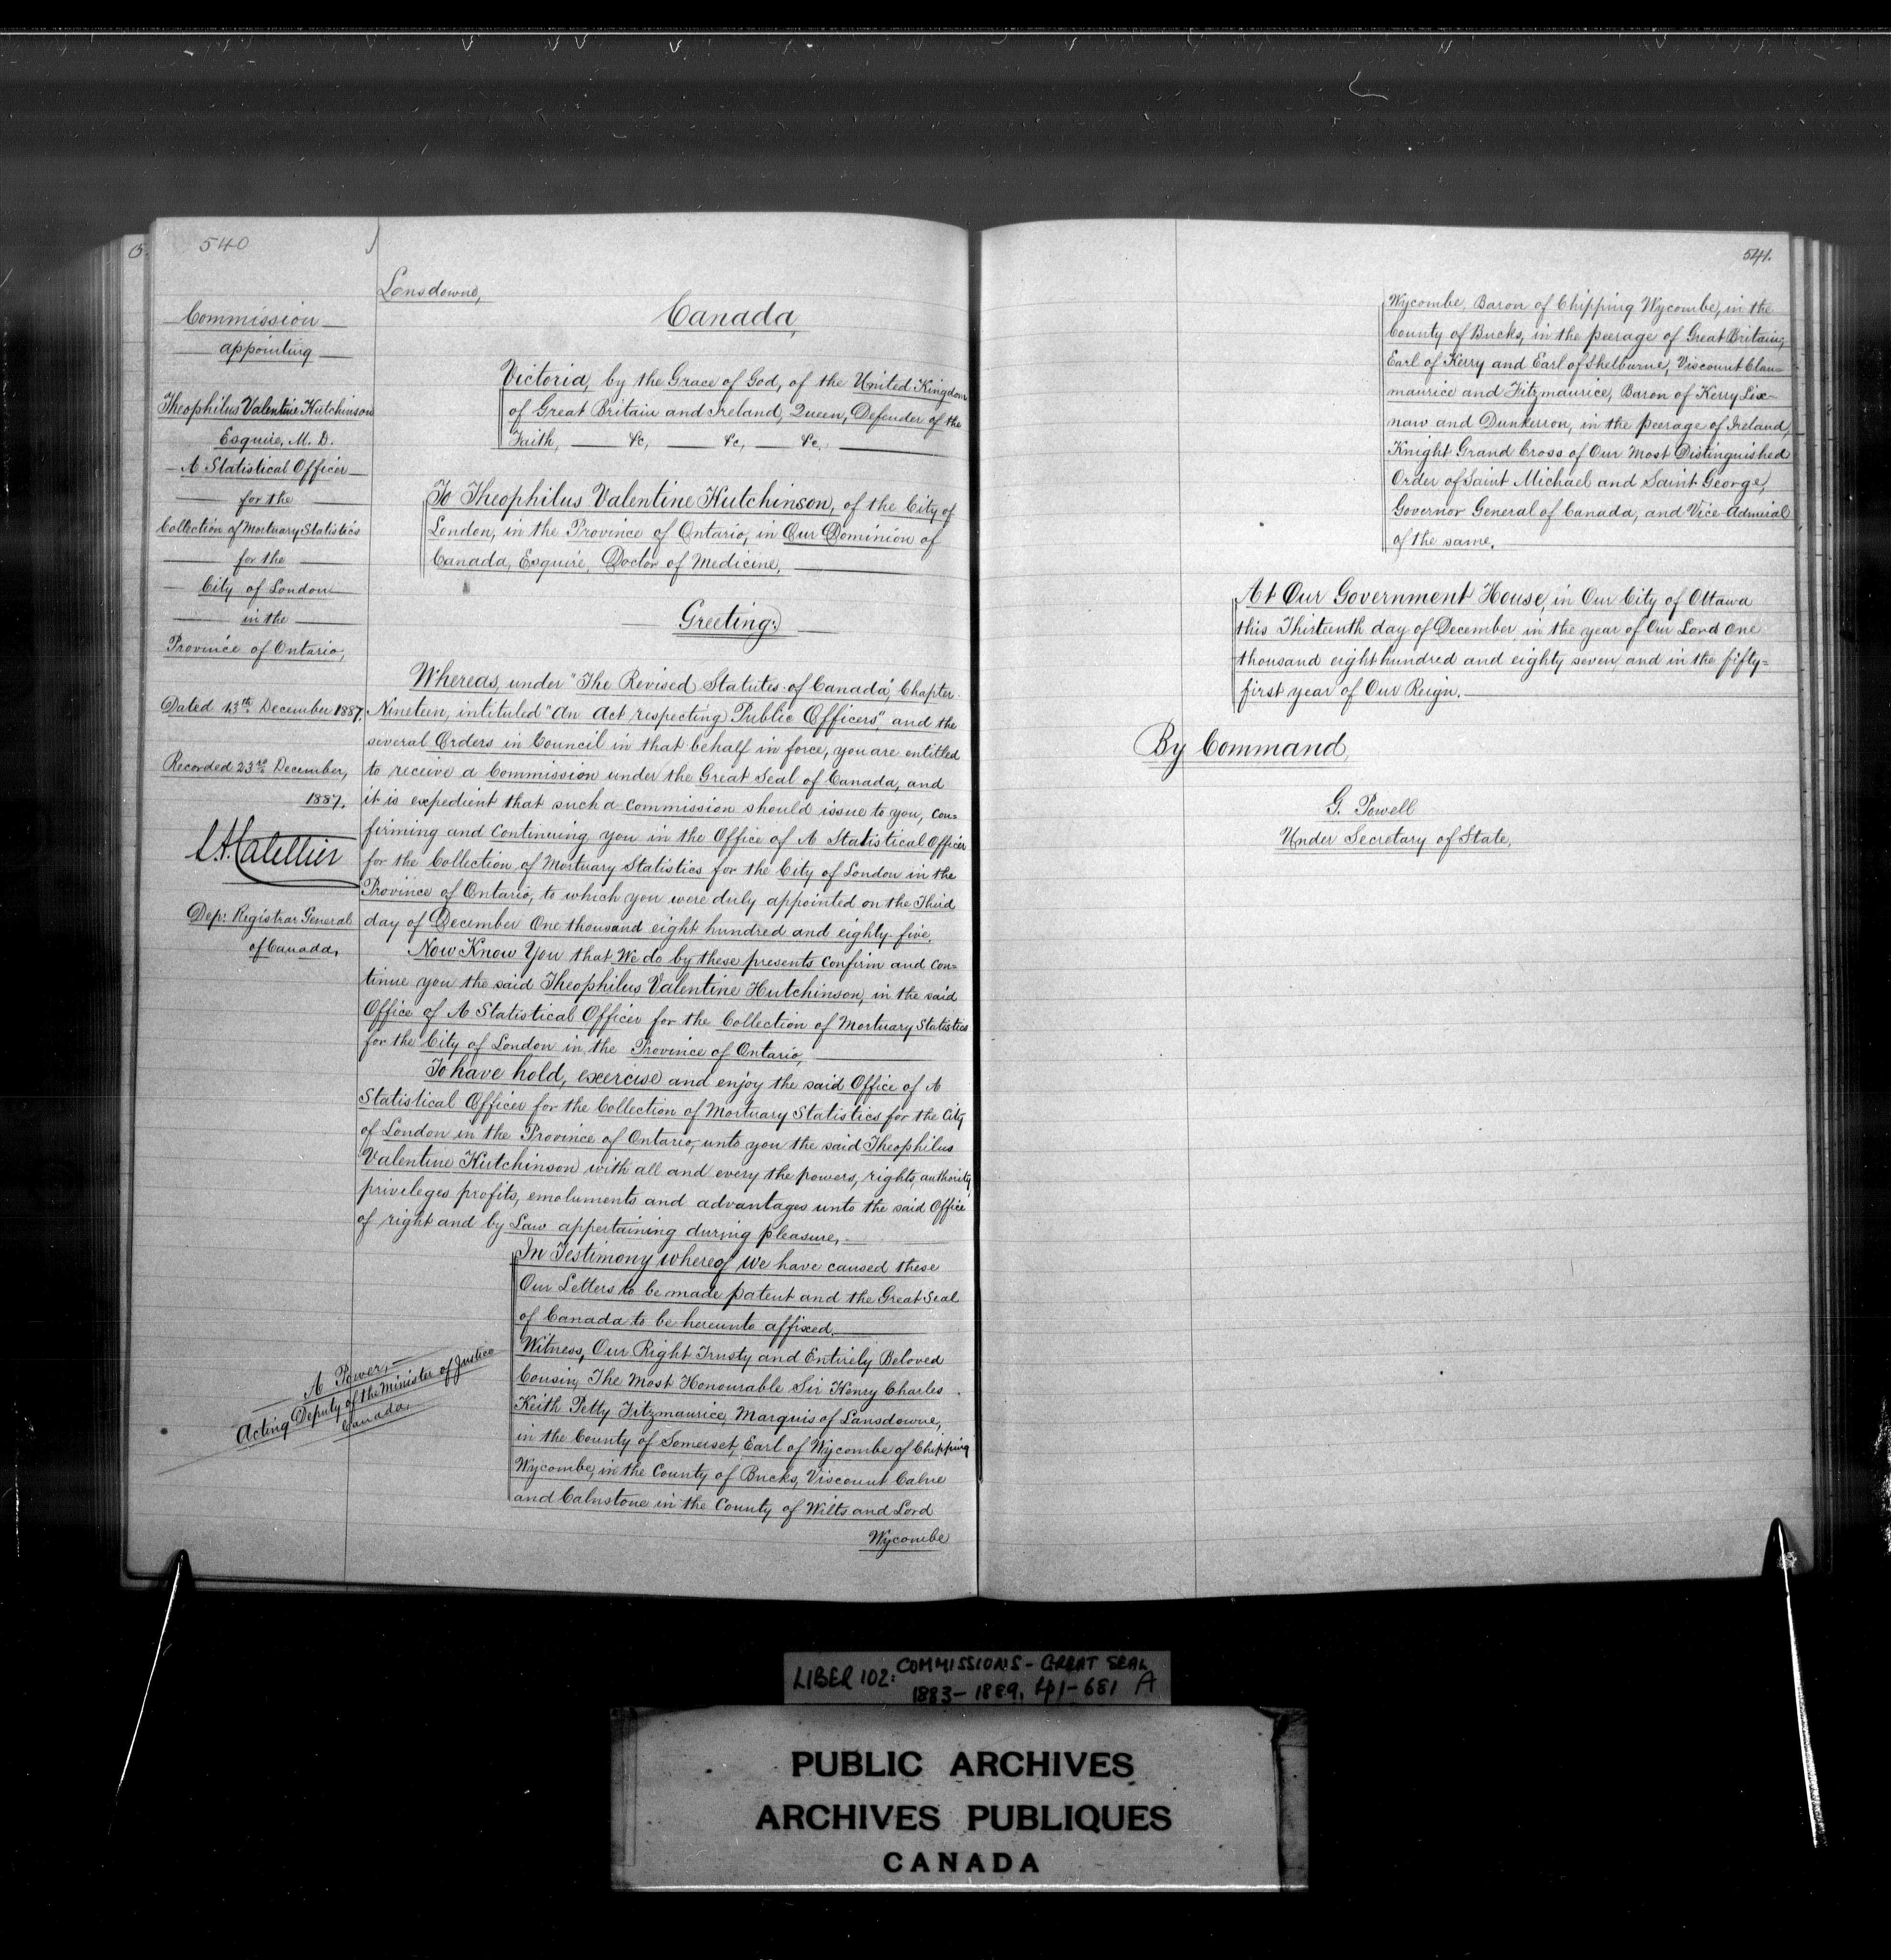 540
Lansdowne,
Commission
appointing
Theophilus Valentine Hutchinson
Esquire, M. D.
A Statistical Officer
for the
Collection of Mortuary Statistics
for the
City of London
in the
Province of Ontario,
Dated 13th December 1887.
Recorded 23rd December,
1887.
Dep: Registrar General
of Canada,
Canada,
Victoria, by the Grace of God, of the United Kingdom
of Great Britain and Ireland, Queen, Defender of the
Faith, &c, &c, &c,
To Theophilus Valentine Hutchinson, of the City of
London, in the Province of Ontario, in Our Dominion of
Canada, Esquire, Doctor of Medicine.
Greeting:
Whereas, under "The Revised Statutes of Canada", Chapter
Nineteen, intituled "An Act respecting Public Officers", and the
several Orders in Council in that behalf in force, you are entitled
to receive a Commission under the Great Seal of Canada, and
it is expedient that such a Commission should issue to you, con=
firming and continuing you in the Office of A Statistical Officer
for the Collection of Mortuary Statistics for the City of London in the
Province of Ontario, to which you were duly appointed on the Third
day of December One thousand eight hundred and eighty-five.
Now Know You that We do by these presents confirm and con=
tinue you the said Theophilus Valentine Hutchinson, in the said
Office of A Statistical Officer for the Collection of Mortuary Statistics
for the City of London in the Province of Ontario,
To have hold, exercise and enjoy the said Office of A
Statistical Officer for the Collection of Mortuary Statistics for the City
of London in the Province of Ontario, unto you the said Theophilus
Valentine Hutchinson with all and every the powers, rights, authority,
privileges profits, emoluments and advantages unto the said Office
of right and by Law appertaining during pleasure,
In Testimony whereof We have caused these
Our Letters to be made patent and the Great Seal
of Canada to be hereunto affixed.
Witness, Our Right Trusty and Entirely Beloved
Cousin, The Most Honourable Sir Henry Charles
Keith Petty Fitzmaurice, Marquis of Lansdowne,
in the County of Somerset, Earl of Wycombe of Chipping
Wycombe, in the County of Bucks, Viscount Calne
and Calnstone in the County of Wilts and Lord
Wycombe
A Power,
Acting Deputy of the Minister of Justice
Canada,
541.
Wycombe, Baron of Chipping Wycombe, in the
County of Bucks, in the peerage of Great Britain,
Earl of Kerry and Earl of Shelburne, Viscount Clan=
maurice and Fitzmaurice, Baron of Kerry Lix=
naw and Dunkerron, in the peerage of Ireland,
Knight Grand Cross of Our Most Distinguished
Order of Saint Michael and Saint George,
Governor General of Canada, and Vice-Admiral
of the same.
At Our Government House, in Our City of Ottawa
this Thirteenth day of December in the year of Our Lord One
thousand eight hundred and eighty seven and in the fifty=
first year of Our Reign.
By Command,
G. Powell
Under Secretary of State,
LIBER 102: COMMISSIONS - GREAT SEAL
1883-1889, 441-681 A
PUBLIC ARCHIVES
ARCHIVES PUBLIQUES
CANADA